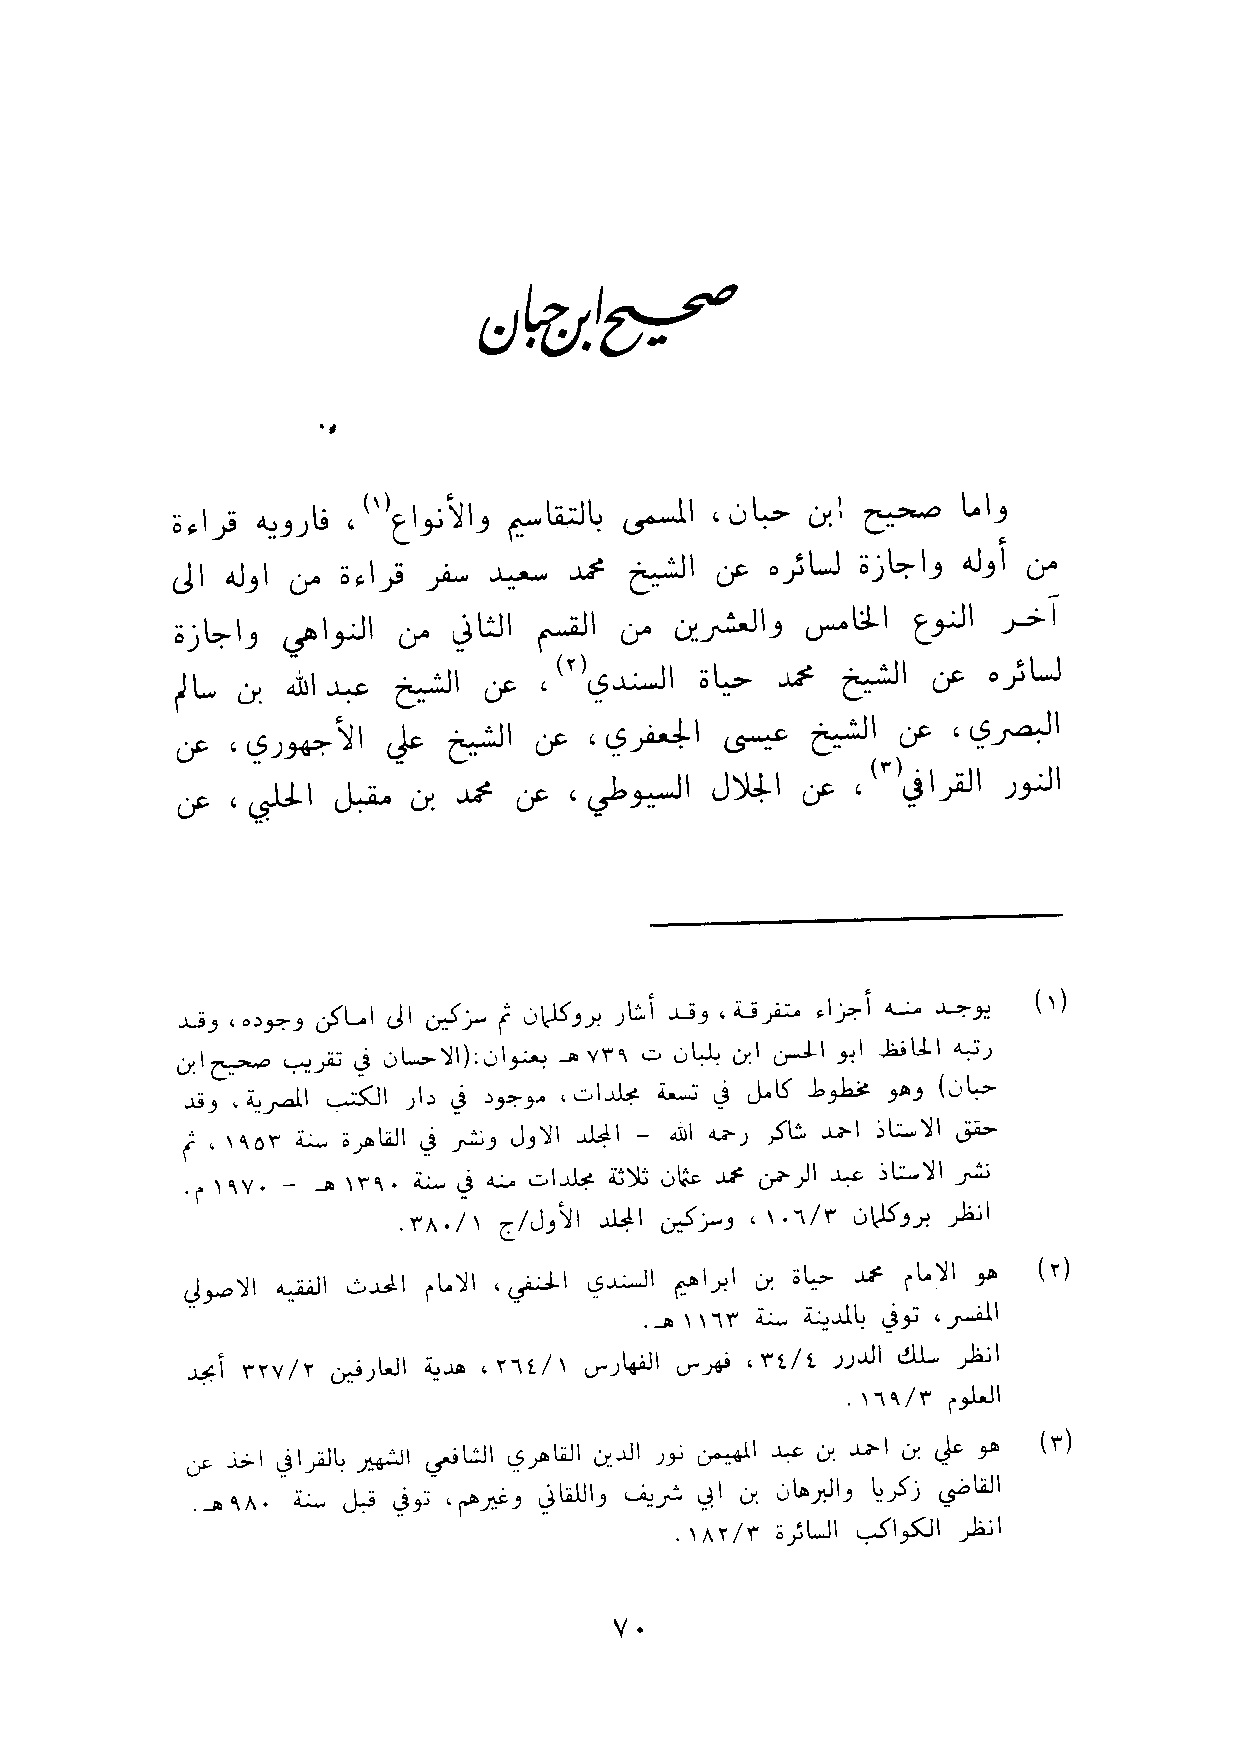 صحيح ابن حبان
واما صحيح ابن حبان، المسمى بالتقاسيم والأنواع(١)، فارويه قراءة
من أوله واجازة لسائره عن الشيخ محمد سعيد سفر قراءة من اوله الى
آخر النوع الخامس والعشرين من القسم الثاني من النواهي واجازة
لسائره عن الشيخ محمد حياة السندي(٢)، عن الشيخ عبد الله بن سالم
البصري، عن الشيخ عيسى الجعفري، عن الشيخ علي الأجهوري، عن
النور القرافي(٣)، عن الجلال السيوطي، عن محمد بن مقبل الحلبي، عن
(١) يوجد منه أجزاء متفرقة، وقد أشار بروكلمان ثم سزكين الى اماكن وجوده، وقد
رتبه الحافظ ابو الحسن ابن بلبان ت ٧٣٩ هـ بعنوان:(الاحسان في تقريب صحيح ابن
حبان) وهو مخطوط كامل في تسعة مجلدات، موجود في دار الكتب المصرية، وقد
حقق الاستاذ احمد شاكر رحمه الله - المجلد الاول ونشر في القاهرة سنة ١٩٥٣، ثم
نشر الاستاذ عبد الرحمن محمد عثمان ثلاثة مجلدات منه في سنة ١٣٩٠ هـ - ١٩٧٠ م.
انظر بروكلمان ١٠٦/٣، وسزكين المجلد الأول/ج ٣٨٠/١.
(٢) هو الامام محمد حياة بن ابراهيم السندي الحنفي، الامام المحدث الفقيه الاصولي
المفسر، توفي بالمدينة سنة ١١٦٣ هـ.
انظر سلك الدرر ٣٤/٤، فهرس الفهارس ٢٦٤/١، هدية العارفين ٣٢٧/٢ أبجد
العلوم ١٦٩/٣.
(٣) هو علي بن احمد بن عبد المهيمن نور الدين القاهري الشافعي الشهير بالقرافي اخذ عن
القاضي زكريا والبرهان بن ابي شريف واللقاني وغيرهم، توفي قبل سنة ٩٨٠هـ.
انظر الكواكب السائرة ١٨٢/٣.
٧٠